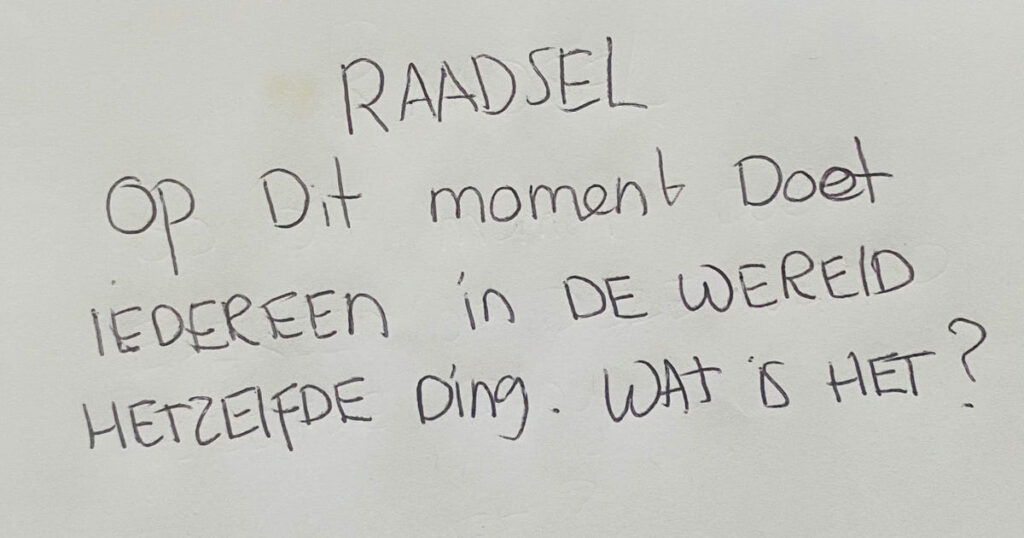 RAADSEL
Op Dit moment Doet
iEDEREEn in DE WERElD
HETZElFDE Ding. WAT is HET?